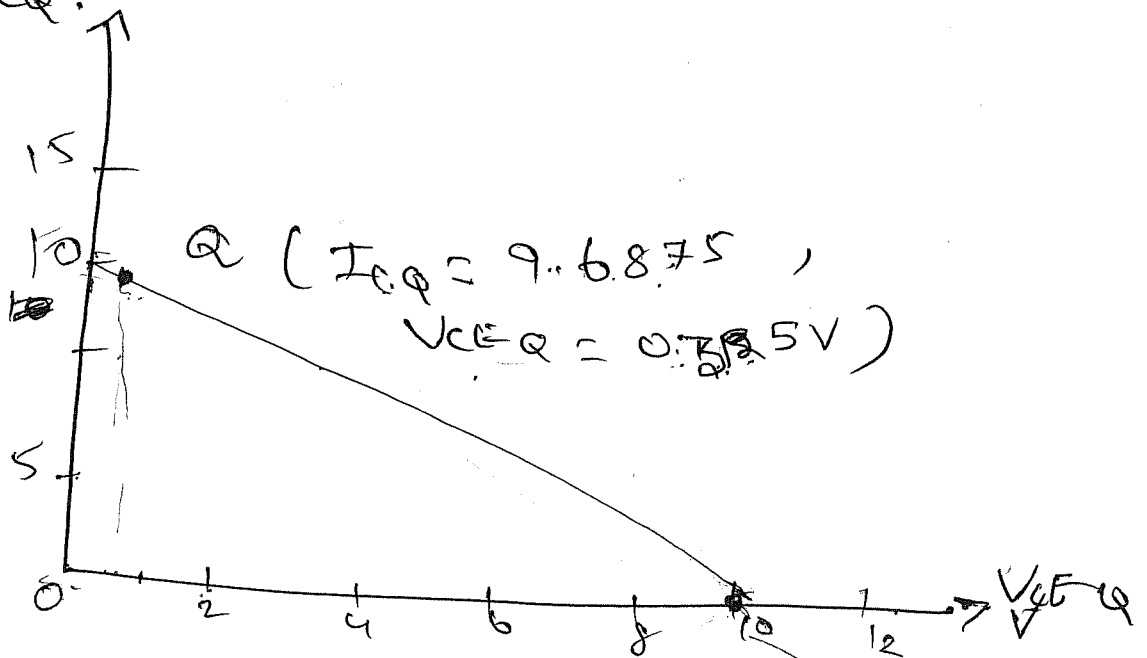 15
10
Q ( ICQ = 9.6875 ,
VCEQ = 5V )
5
0 2 4 6 8 10 12
VCEQ
V